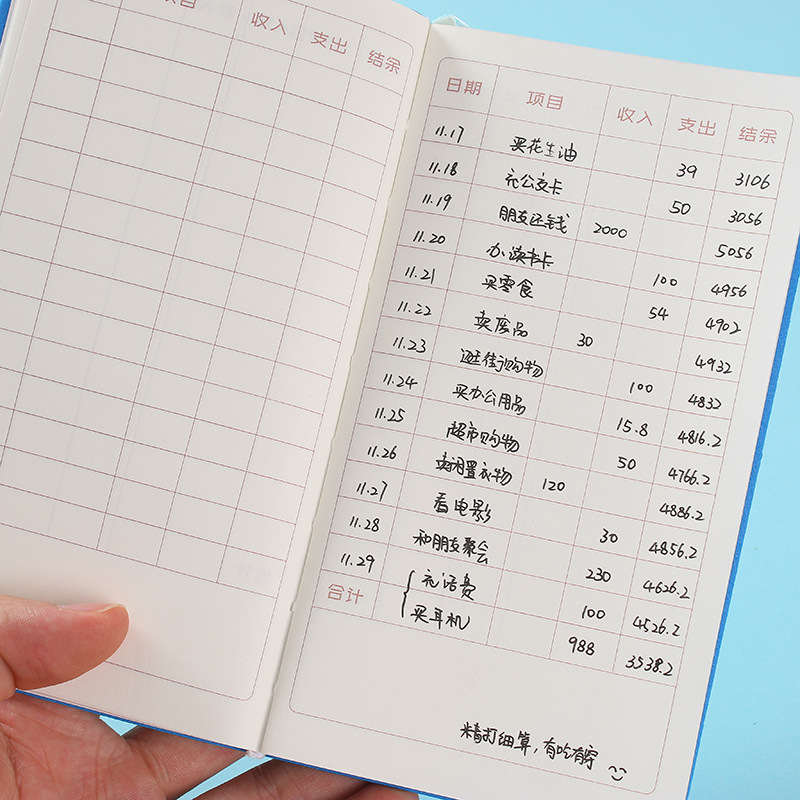 项目 收入 支出 结余
日期 项目 收入 支出 结余
11.17 买花生油 39 3106
11.18 充公交卡 50 3056
11.19 朋友还钱 2000 5056
11.20 办读书卡 100 4956
11.21 买零食 54 4902
11.22 卖废品 30 4932
11.23 逛街购物 100 4832
11.24 买办公用品 15.8 4816.2
11.25 超市购物 50 4766.2
11.26 卖闲置衣物 120 4886.2
11.27 看电影 30 4856.2
11.28 和朋友聚会 230 4626.2
11.29 充话费 100 4526.2
合计 买耳机 988 3538.2
精打细算,有吃有穿